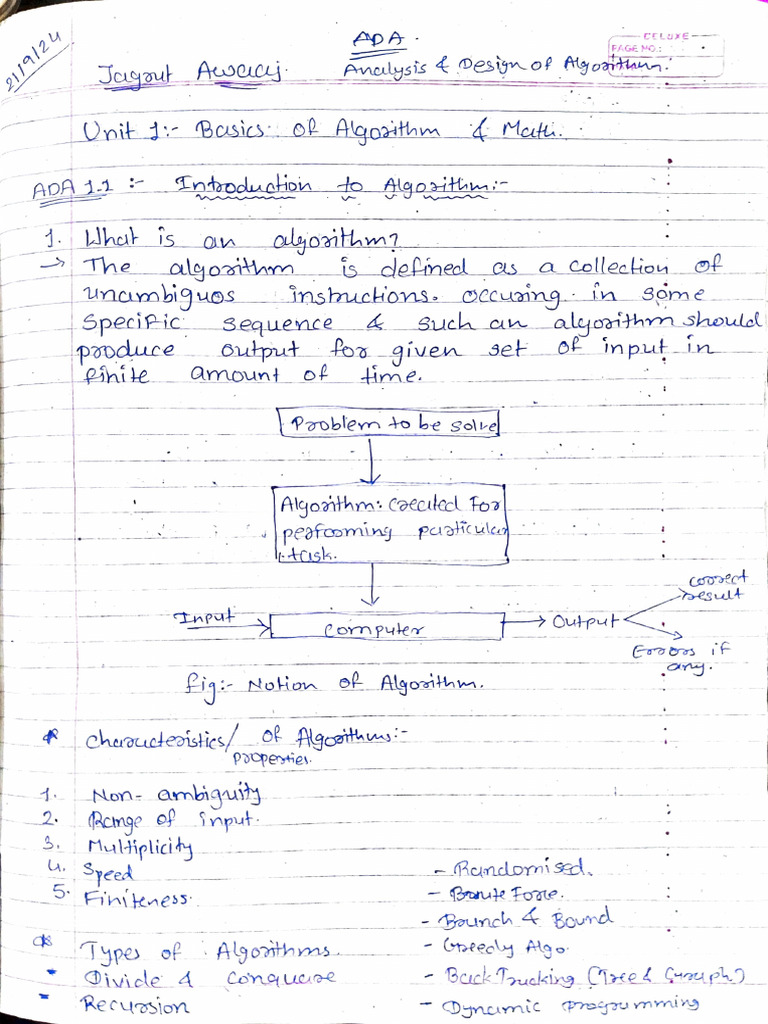 21/9/24
ADA.
DELUXE
PAGE NO.:
Jagrut Awaaj.
Analysis & Design of Algorithm.
Unit 1:- Basics of Algorithm & Math.
ADA 1.1 :- Introduction to Algorithm:-
1. What is an algorithm?
→ The algorithm is defined as a collection of
unambiguos instructions. occuring in some
specific sequence & such an algorithm should
produce output for given set of input in
finite amount of time.
Problem to be solve
Algorithm: created for
performing particular
task.
Input
computer
Output
correct
result
Errors if
any.
fig:- Notion of Algorithm.
* characteristics/ of Algorithms:-
properties.
1. Non-ambiguity
2. Range of input.
3. Multiplicity
4. Speed
5. Finiteness.
* Types of Algorithms.
- Divide & conquare
- Recursion
- Randomised.
- Brute Force.
- Braunch & Bound
- Greedy Algo.
- Back Tracking (Tree & Graph)
- Dynamic programming